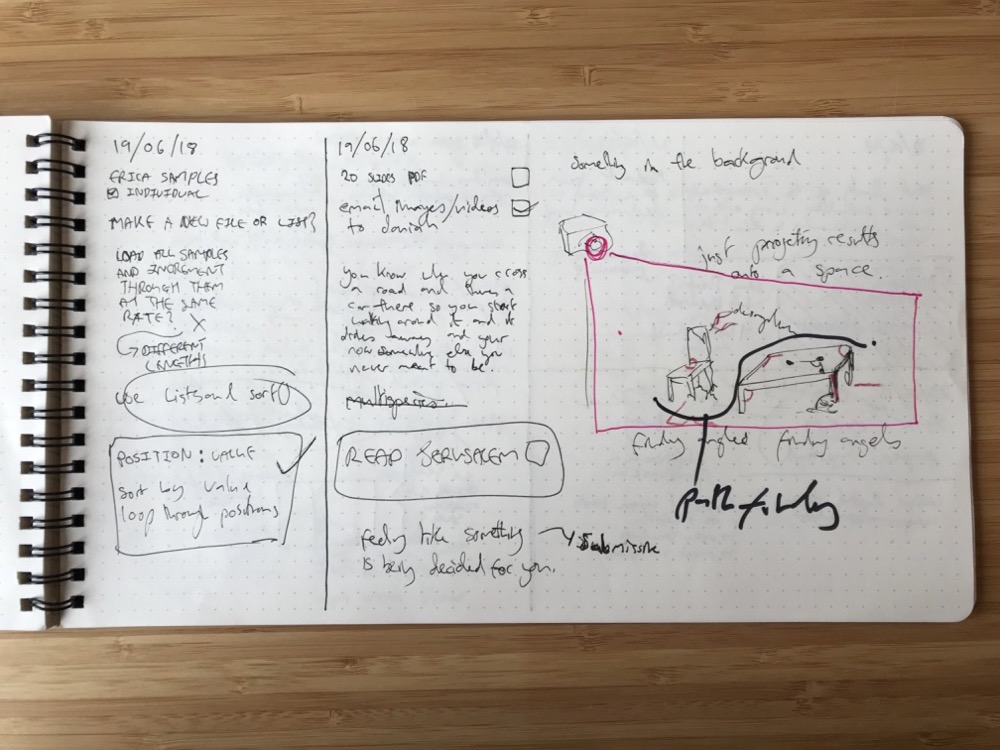 19/06/18
ERICA SAMPLES
INDIVIDUAL
MAKE A NEW FILE OR LIST?
LOAD ALL SAMPLES
AND INCREMENT
THROUGH THEM
AT THE SAME
RATE? X
DIFFERENT
LENGTHS
use List and sort()
POSITION : VALUE
sort by value
loop through positions
19/06/18
20 SLIDES PDF
email images/videos
to
you know when you cross
a road and theres a
car there, so you start
walking around it and it
drives away and your
now somewhere else you
never meant to be.
multispecies...
READ JERUSALEM
feeling like something
is being decided for you.
submissive
Something in the background
just projecting results
onto a space.
finding angled finding angels
path finding